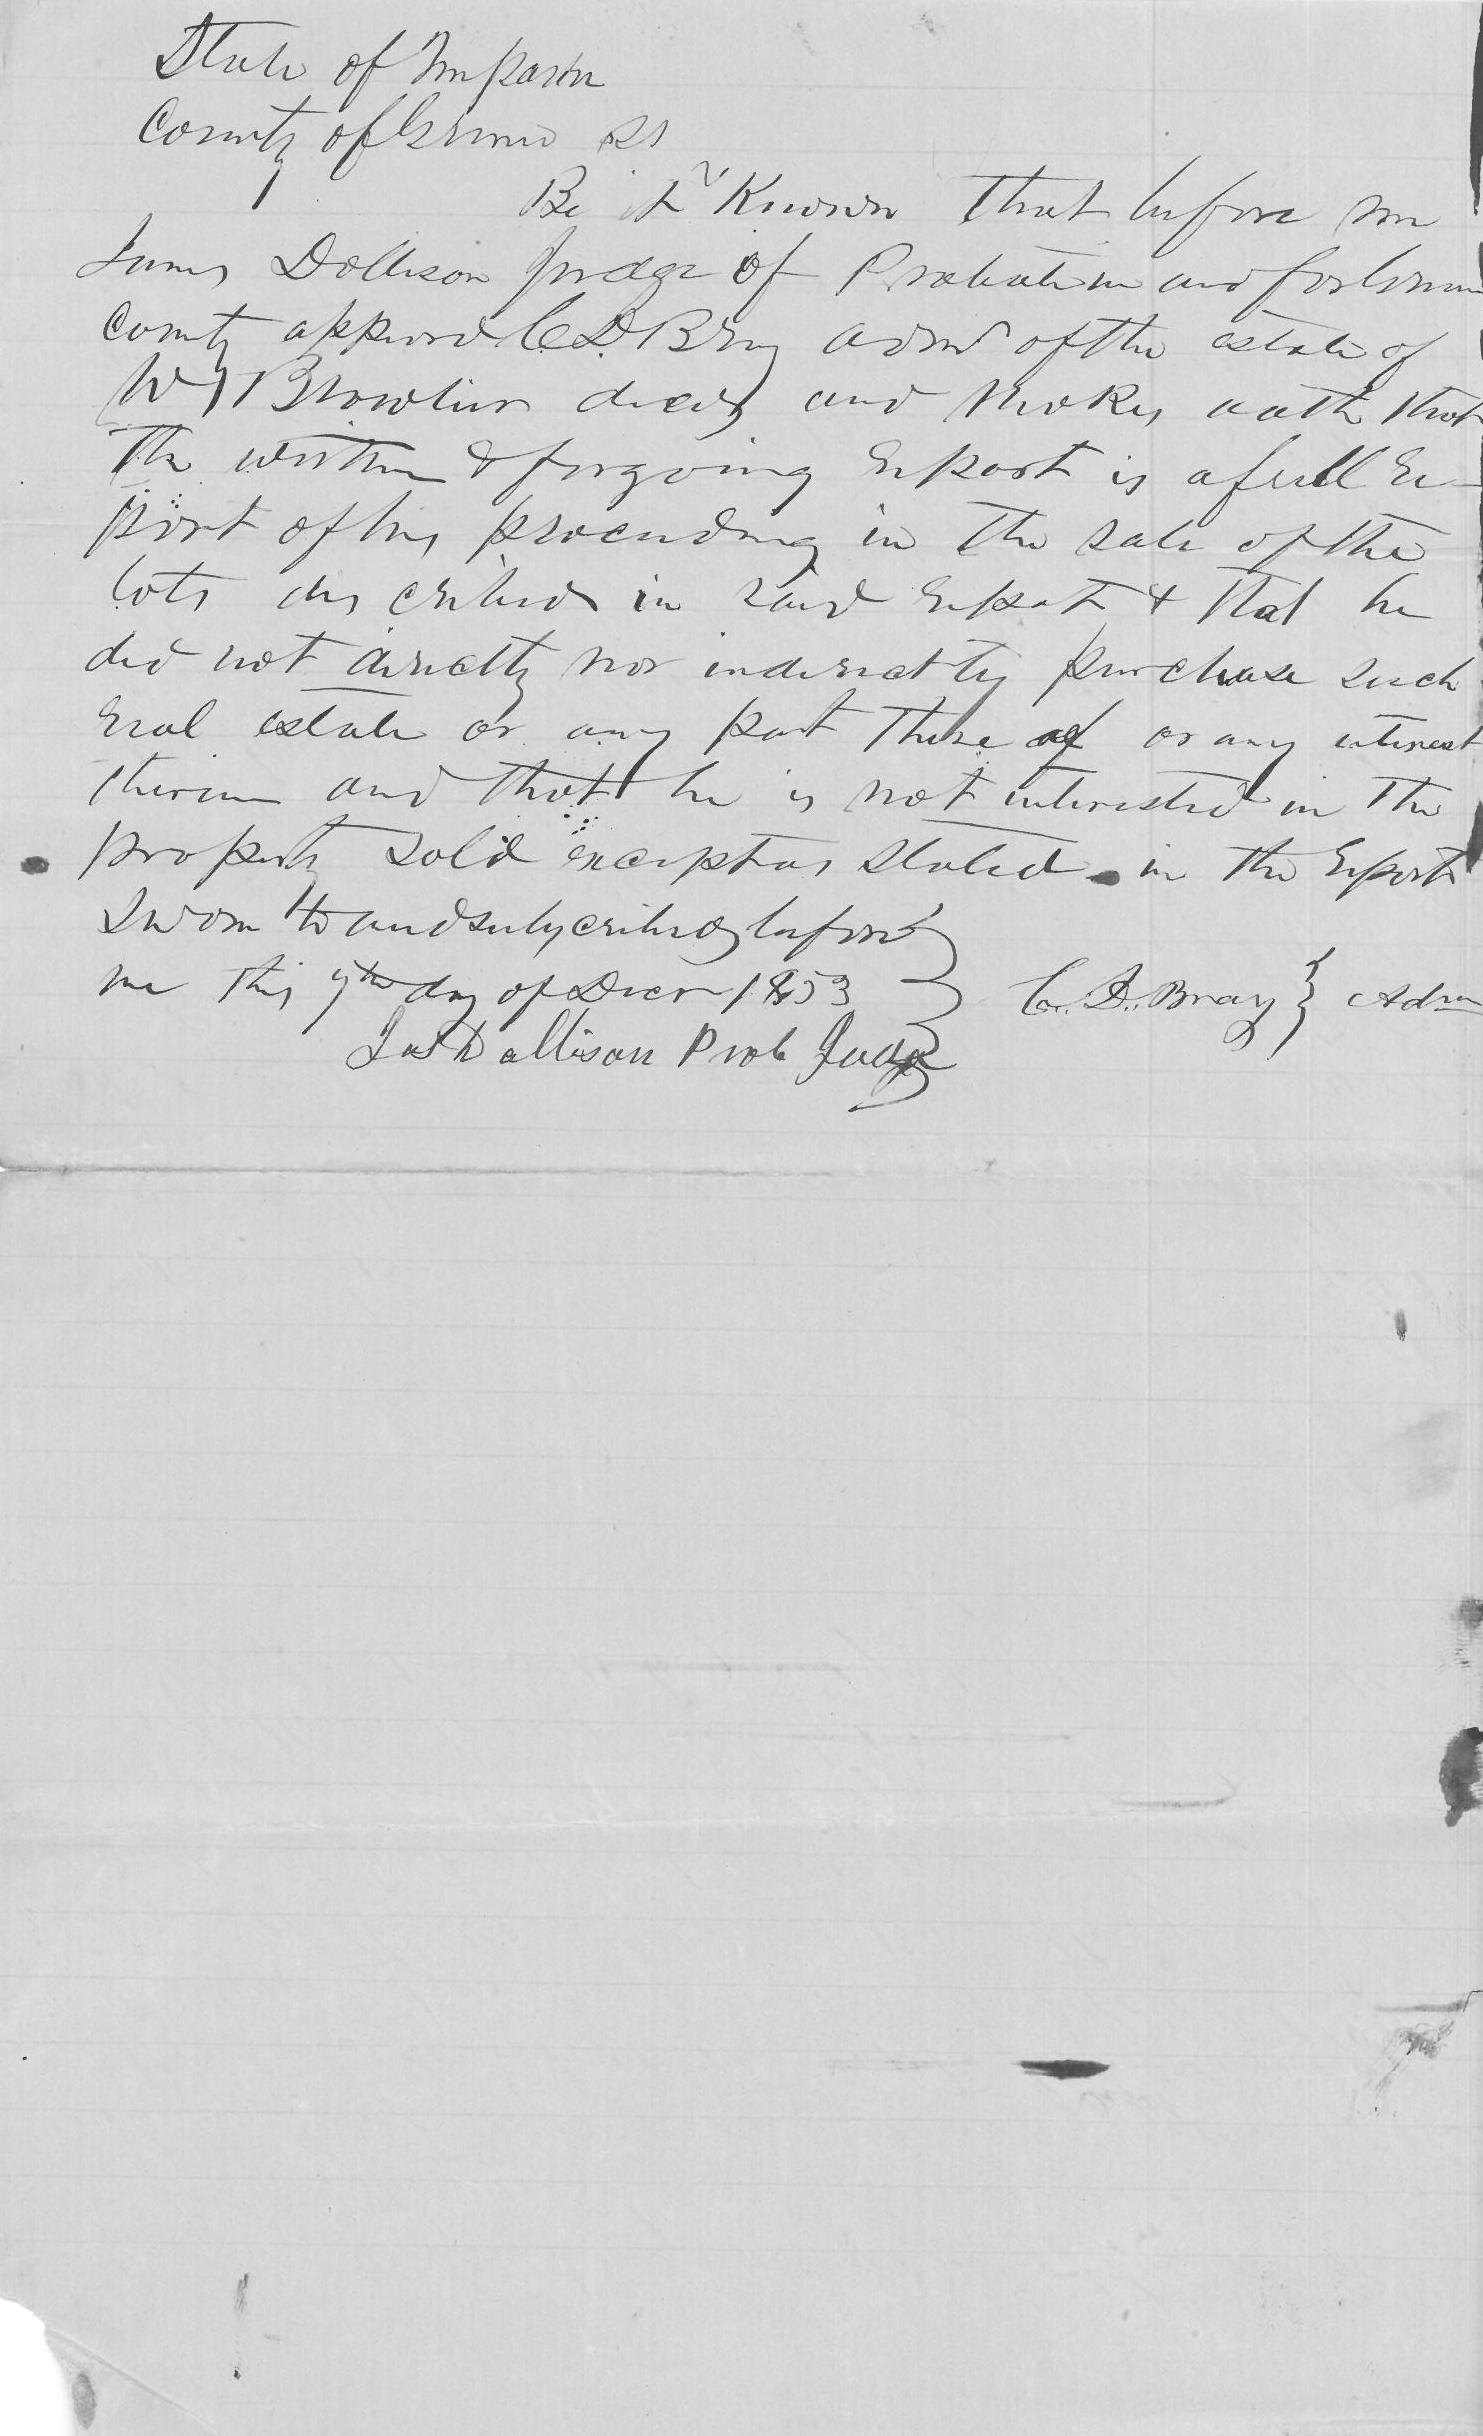 State of Missouri
County of Greene ss
Be it Known that before me
James Dollison Judge of Probate in and for Greene
County appeard C D Bray admr of the estate of
W decd and Makes oath that
the written & forgoing Report is a full Re
port of his proceeding in the sale of the
lots described in said Report & that he
did not directly nor indirectly purchase such
real estate or any part there of or any interest
therein and that he is not interested in the
property sold except as stated in the Report
Sworn to and subscribed before
me this 7th day of Decr 1853 } C. D. Bray } Adm
Jas Dollison Prob Judge